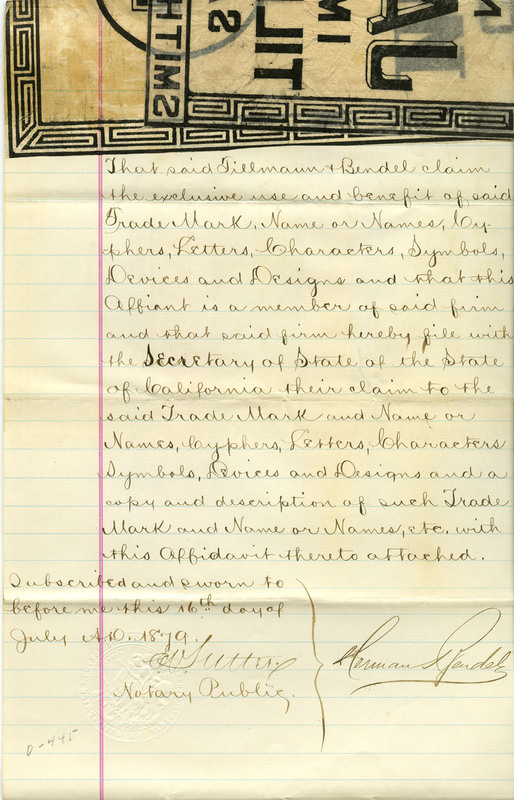 SMITH
TILL
MI
AU
That said Tillmann & Bendel claim
the exclusive use and benefit of said
Trade Mark, Name or Names, Cy-
phers, Letters, Characters, Symbols,
Devices and Designs and that this
Affiant is a member of said firm
and that said firm hereby file with
the Secretary of State of the State
of California their claim to the
said Trade Mark and Name or
Names, Cyphers, Letters, Characters
Symbols, Devices and Designs and a
copy and description of such Trade
Mark and Name or Names, etc. with
this Affidavit thereto attached.
Subscribed and sworn to
before me this 16th day of
July A.D. 1879.
Sutter
Notary Public.
Herman Bendel
0-445